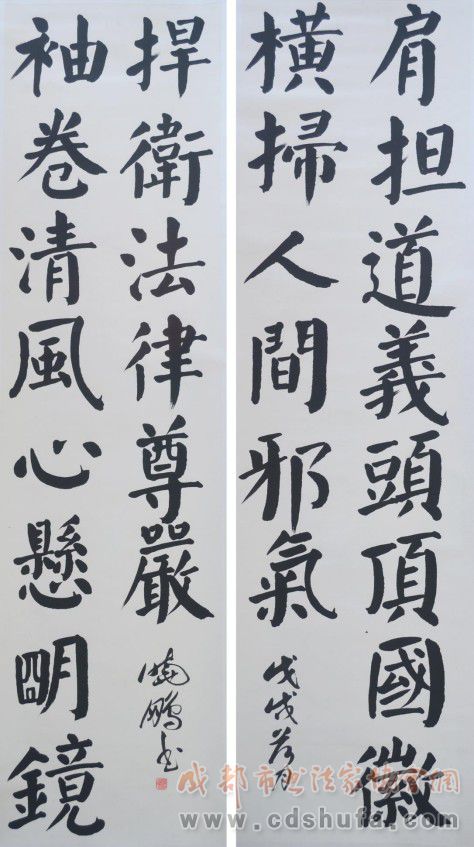 肩担道義頭頂國徽
横掃人間邪氣
戊戌
袖卷清風心懸明鏡
捍衛法律尊嚴
曉鵬书
成都市书法家协会网
www.cdshufa.com